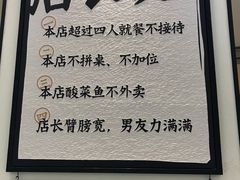 一 本店超过四人就餐不接待
二 本店不拼桌、不加位
三 本店酸菜鱼不外卖
四 店长臂膀宽,男友力满满